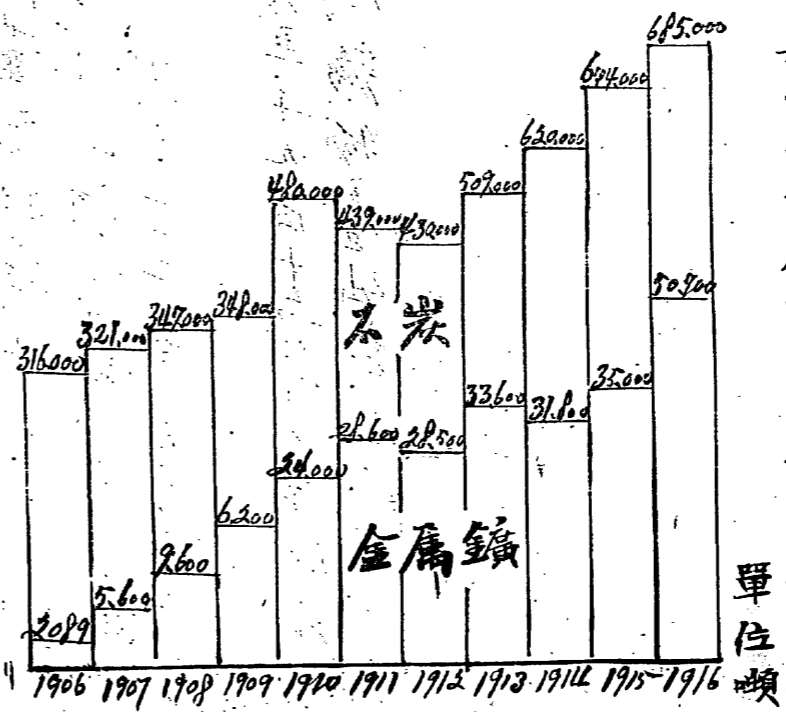 685.000
674.000
620.000
509.000
480.000
439.000
430.000
348.000
347.000
321.000
316.000
石炭
50.700
35.000
33.600
31.800
28.600
28.500
24.000
6.200
9.600
5.600
2089
金属鑛
單位噸
1906 1907 1908 1909 1910 1911 1912 1913 1914 1915 1916